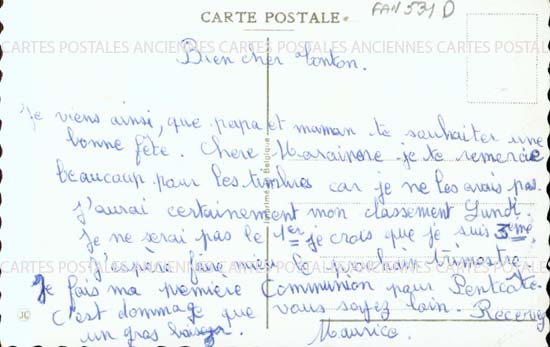 CARTE POSTALE
FAN 531 D
Bien cher tonton.
CARTES POSTALES ANCIENNES CARTES POSTALES ANCIENNES CARTES POSTALES
Je viens ainsi, que papa et maman te souhaiter une
bonne fête. Chère Marainne je te remercie
beaucoup pour les timbres car je ne les avais pas.
Imprimé en Belgique
j'aurai certainement mon classement Lundi.
Je ne serai pas le 1er je crois que je suis 3eme
CARTES POSTALES ANCIENNES CARTES POSTALES ANCIENNES CARTES POSTALES
J'espère faire mieu le prochain trimestre.
Je fais ma première Communion pour Pentcôte
C'est dommage que vous soyez loin. Recevez
JC
un gros baiser. Maurice.